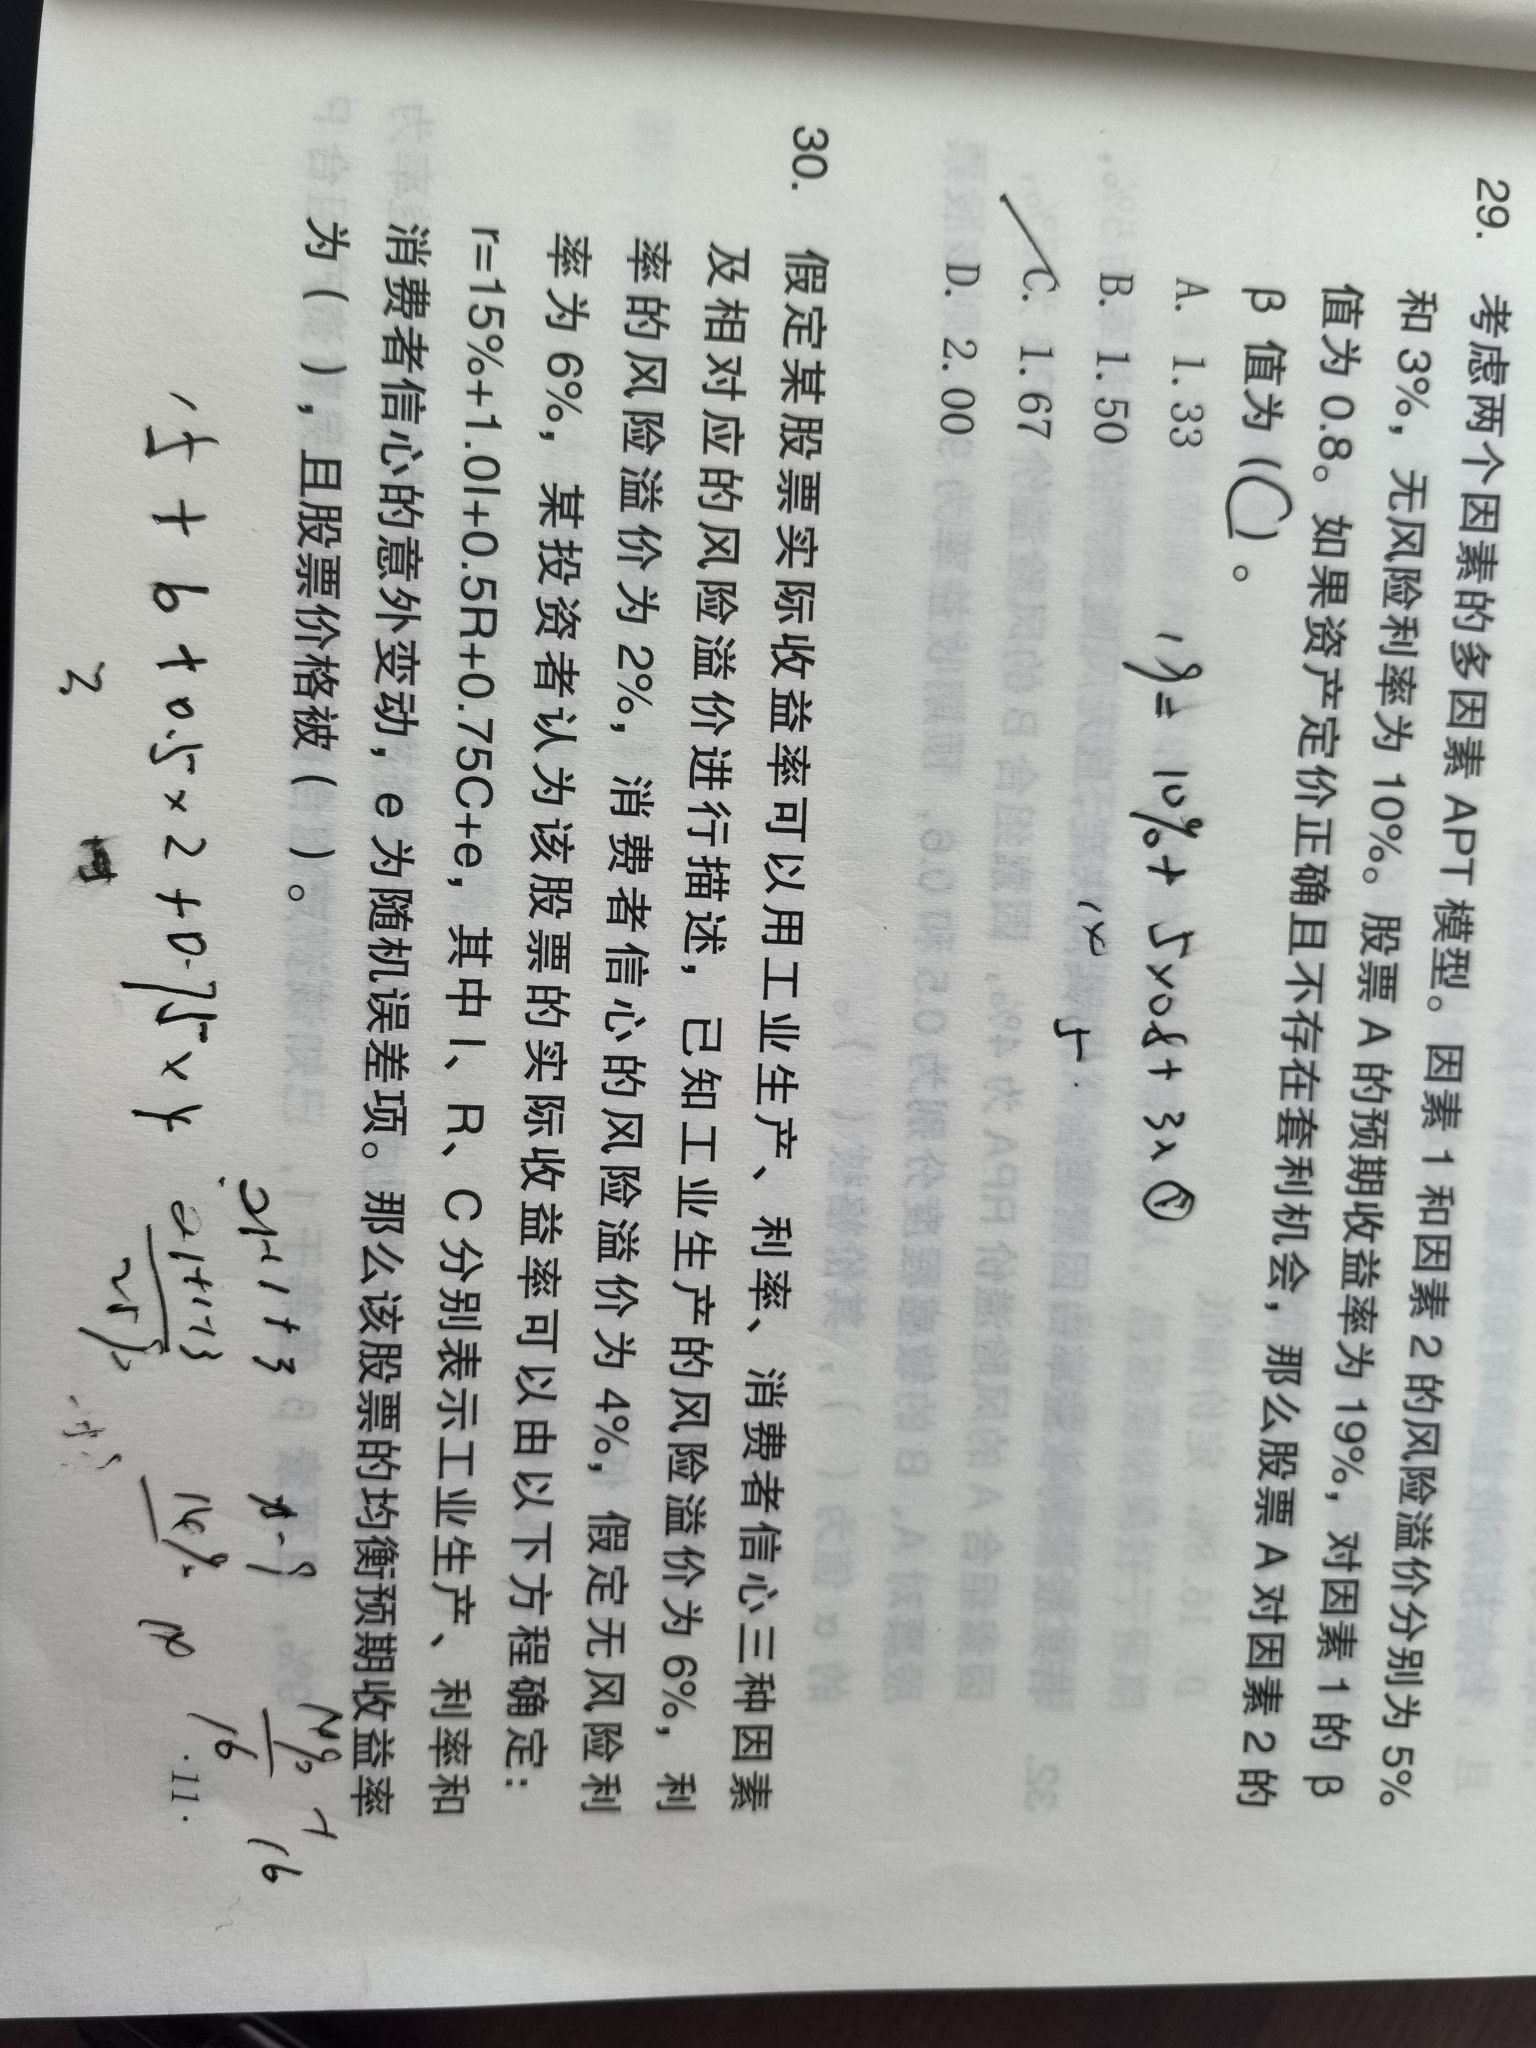 29. 考虑两个因素的多因素 APT 模型。因素 1 和因素 2 的风险溢价分别为 5%
和 3%，无风险利率为 10%。股票 A 的预期收益率为 19%，对因素 1 的 β
值为 0.8。如果资产定价正确且不存在套利机会，那么股票 A 对因素 2 的
β 值为（C）。
A. 1.33
B. 1.50
C. 1.67
D. 2.00
19= 10%+ 5×0.8+ 3×
14
5
30. 假定某股票实际收益率可以用工业生产、利率、消费者信心三种因素
及相对应的风险溢价进行描述，已知工业生产的风险溢价为 6%，利
率的风险溢价为 2%，消费者信心的风险溢价为 4%，假定无风险利
率为 6%，某投资者认为该股票的实际收益率可以由以下方程确定：
r=15%+1.0I+0.5R+0.75C+e，其中 I、R、C 分别表示工业生产、利率和
消费者信心的意外变动，e 为随机误差项。那么该股票的均衡预期收益率
为（ ），且股票价格被（ ）。
15 + 6 + 0.5×2 + 0.75×4
21+1+3
21+1+3
25%
3
16
16
·11·